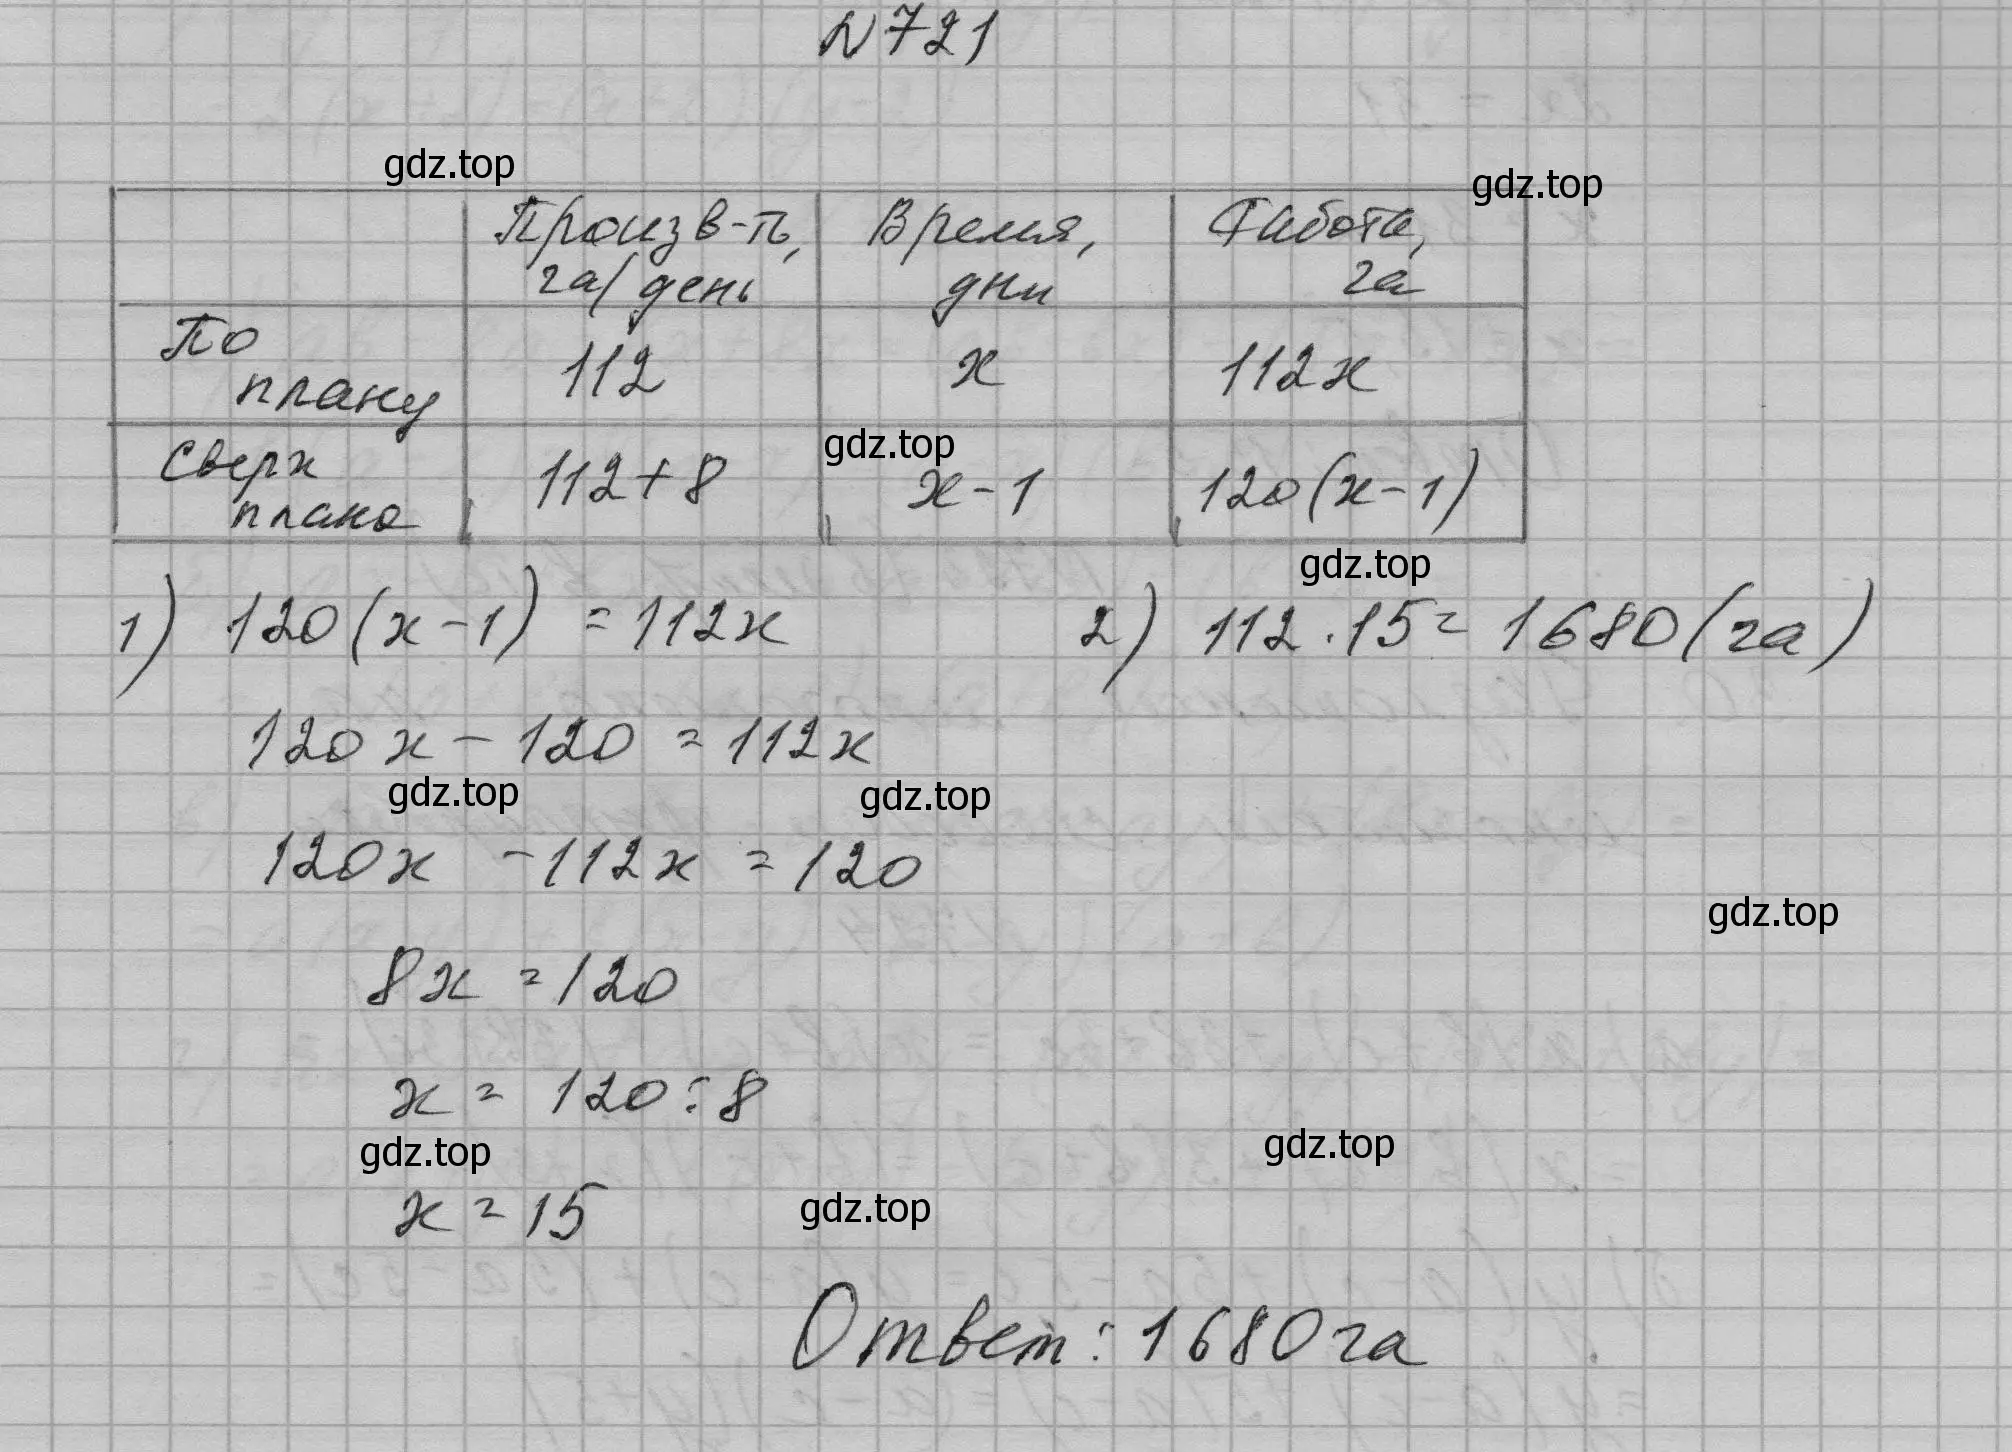 N721
gdz.top
gdz.top
Произв-ть, га/день
Время, дни
Работа, га
По плану
112
x
112x
gdz.top
Сверх плана
112+8
x-1
120(x-1)
gdz.top
1) 120(x-1) = 112x
2) 112·15 = 1680(га)
120x - 120 = 112x
gdz.top
gdz.top
120x - 112x = 120
gdz.top
8x = 120
x = 120:8
gdz.top
gdz.top
x = 15
gdz.top
Ответ: 1680 га